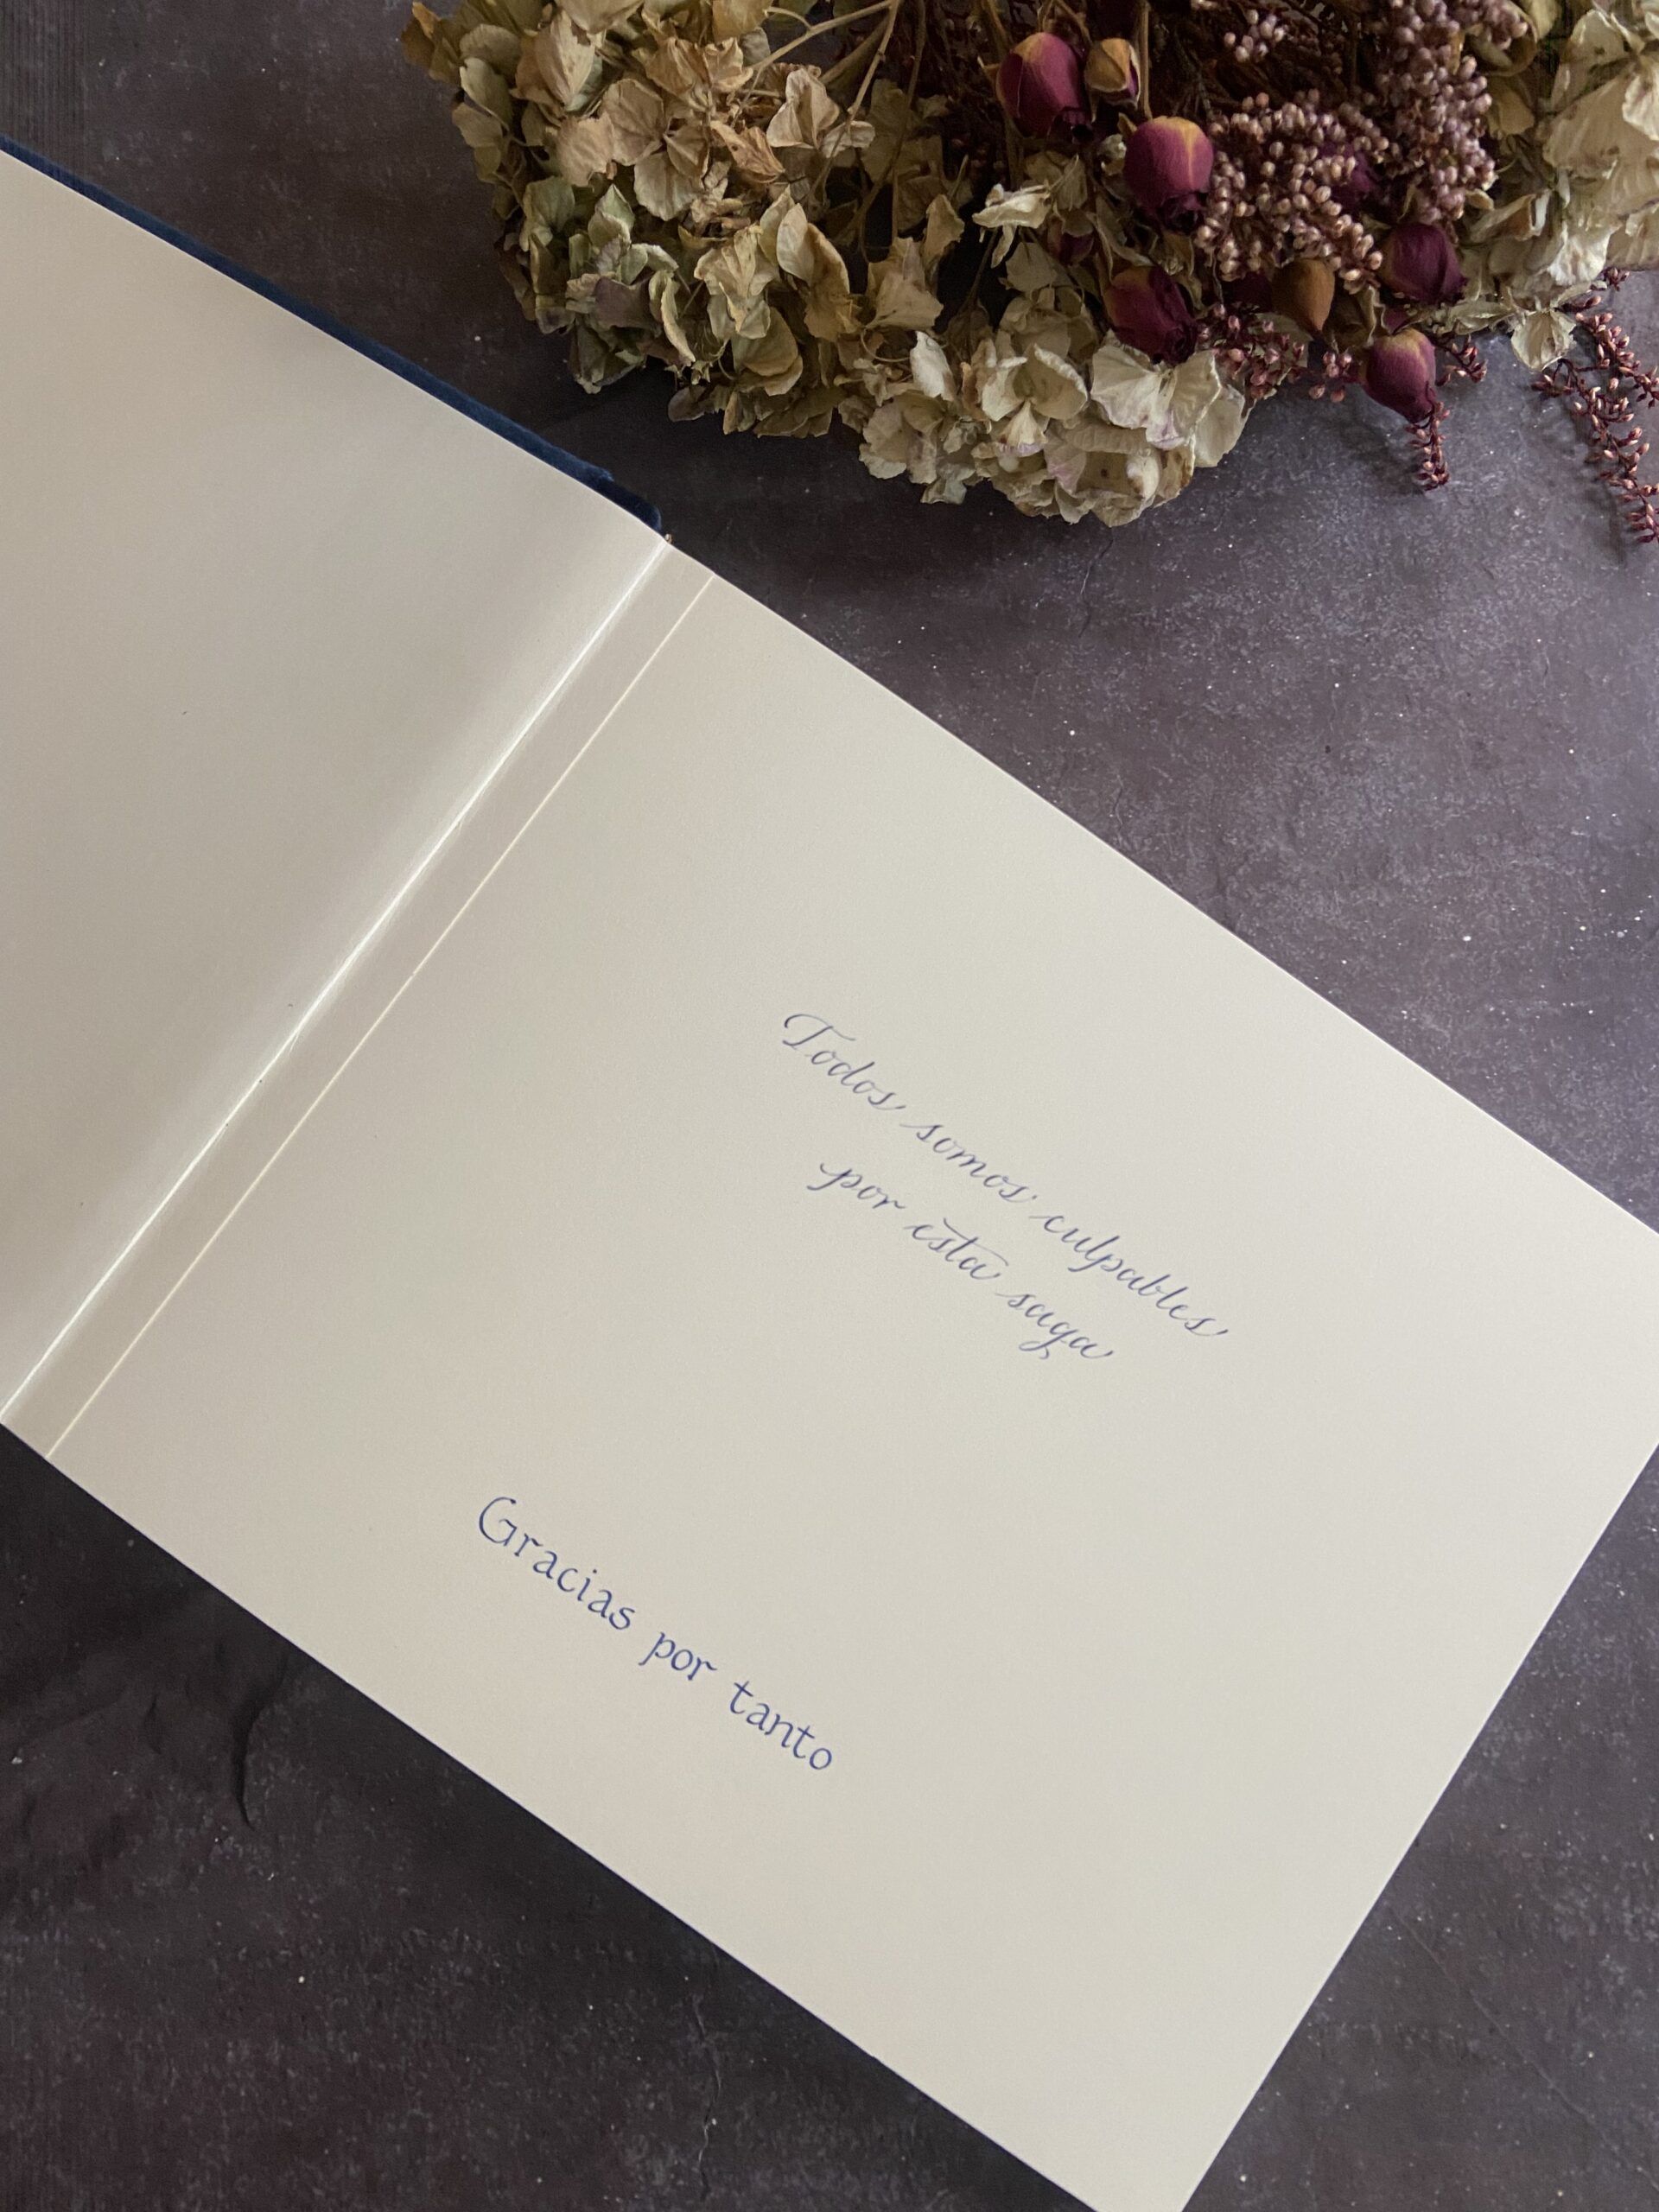 Todos somos culpables
por esta saga
Gracias por tanto